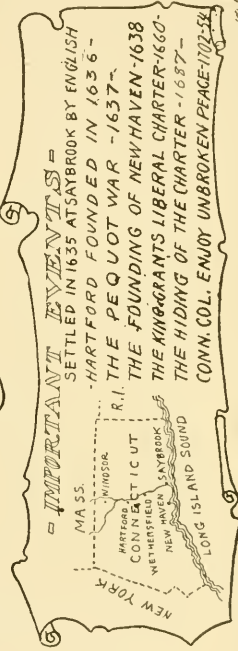 - IMPORTANT EVENTS -
SETTLED IN 1635 AT SAYBROOK BY ENGLISH
-HARTFORD FOUNDED IN 1636-
THE PEQUOT WAR -1637-
THE FOUNDING OF NEW HAVEN-1638
THE KING GRANTS LIBERAL CHARTER-1660-
THE HIDING OF THE CHARTER-1687-
CONN. COL. ENJOY UNBROKEN PEACE-1702-54
MASS.
R.I.
NEW YORK
WINDSOR
HARTFORD
CONNECTICUT
WETHERSFIELD
NEW HAVEN
SAYBROOK
LONG ISLAND SOUND